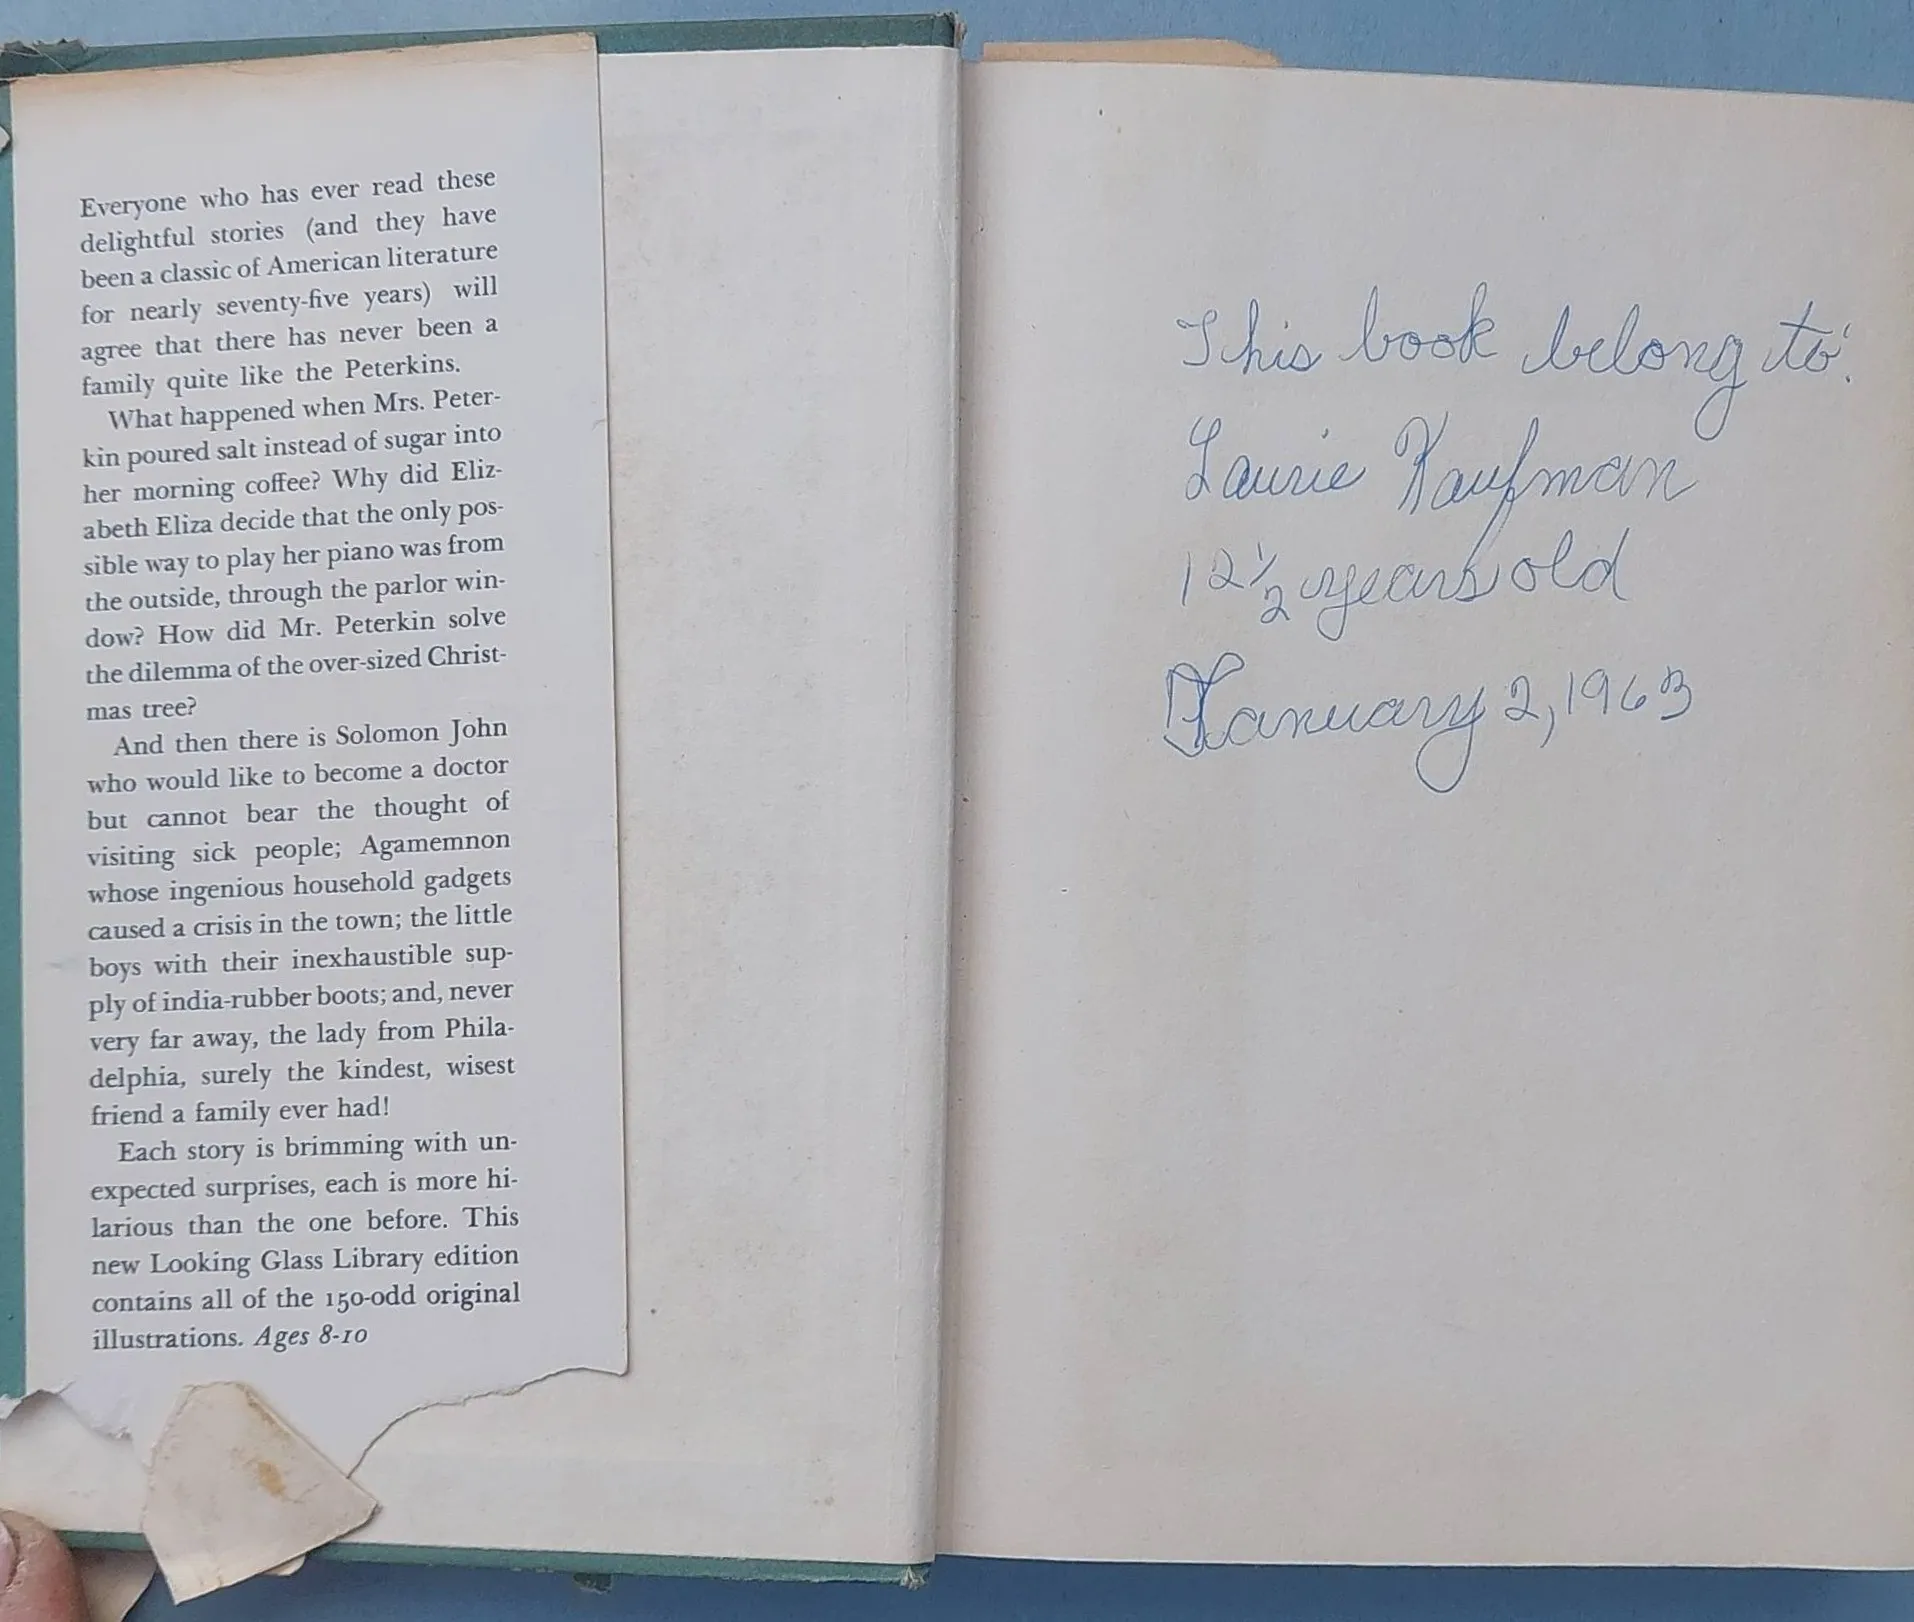 Everyone who has ever read these
delightful stories (and they have
been a classic of American literature
for nearly seventy-five years) will
agree that there has never been a
family quite like the Peterkins.
What happened when Mrs. Peter-
kin poured salt instead of sugar into
her morning coffee? Why did Eliz-
abeth Eliza decide that the only pos-
sible way to play her piano was from
the outside, through the parlor win-
dow? How did Mr. Peterkin solve
the dilemma of the over-sized Christ-
mas tree?
And then there is Solomon John
who would like to become a doctor
but cannot bear the thought of
visiting sick people; Agamemnon
whose ingenious household gadgets
caused a crisis in the town; the little
boys with their inexhaustible sup-
ply of india-rubber boots; and, never
very far away, the lady from Phila-
delphia, surely the kindest, wisest
friend a family ever had!
Each story is brimming with un-
expected surprises, each is more hi-
larious than the one before. This
new Looking Glass Library edition
contains all of the 150-odd original
illustrations. Ages 8-10
This book belong to:
Laurie Kaufman
12 1/2 years old
January 2, 1963